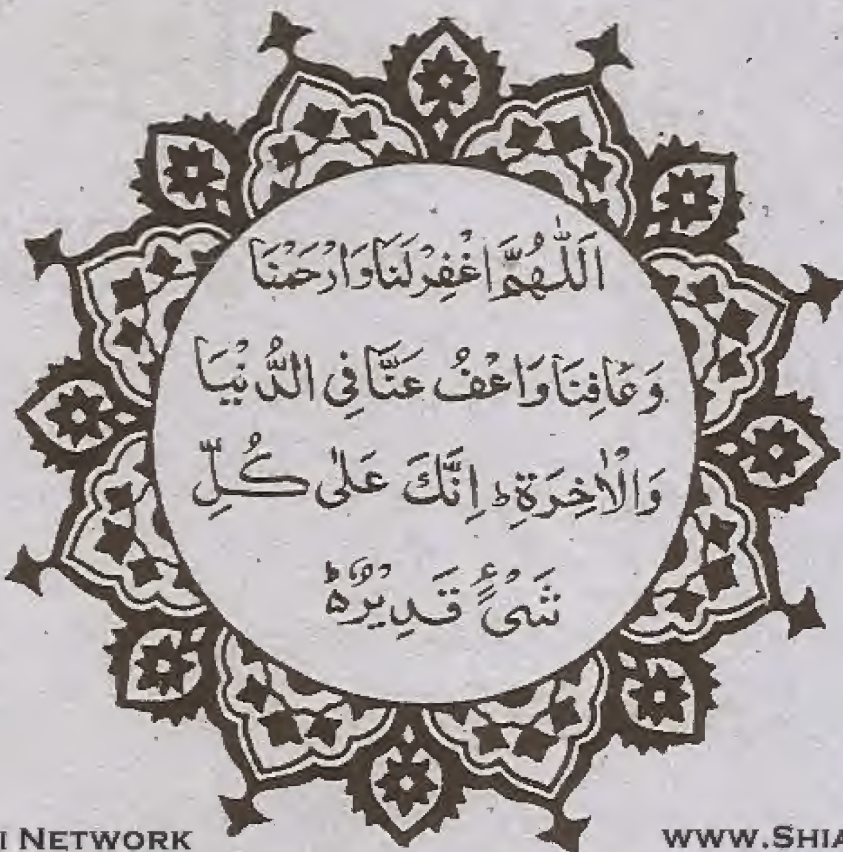 اَللّٰهُمَّ اغْفِرْ لَنَا وَارْحَمْنَا
وَعَافِنَا وَاعْفُ عَنَّا فِي الدُّنْيَا
وَالْاٰخِرَةِ ؕ اِنَّكَ عَلٰى كُلِّ
شَىْءٍ قَدِيْرٌ ؕ
NETWORK